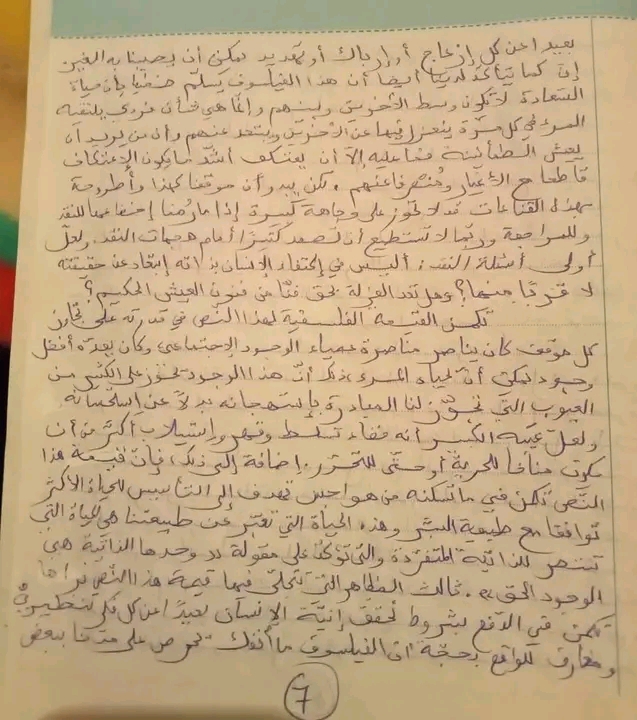 بعيدا عن كل إزعاج أو إرباك أو تهديد يمكن أن يصيبنا به الغير
إن كما يتأكد لدينا أيضا أن هذا الفيلسوف يسلّم ضمنيا بأن حياة
السعادة لا تكون وسط الآخرين وبينهم وإنما هي شأن فردي يلتقيه
المرء في كل مرة ينعزل فيها عن الآخرين ويبتعد عنهم وأن من يريد أن
يعيش الطمأنينة فما عليه إلا أن يعتكف أشد ما يكون الإعتكاف
قاطعا مع الأغيار ومنصرفا عنهم. لكن يبدو أن موقفا كهذا وأطروحة
بهذه القناعات قد لا تحوز على وجاهة كبيرة إذا ما رمنا إخضاعها للنقد
وللمراجعة وربما لا تستطيع أن تصمد كثيرا أمام هجمات النقد. ولعل
أولى أسئلة النقد: أليس في إكتفاء الإنسان بذاته إبتعاد عن حقيقته
لا قربا منها؟ وهل تعد العزلة بحق فنا من فنون العيش الحكيم؟
تكمن القيمة الفلسفية لهذا النص في قدرته على تجاوز
كل موقف كان يناصر مناصرة عمياء الوجود الإجتماعي وكان يعدّه أفضل
وجود يمكن أن يحياه المرء، ذلك أنّ هذا الوجود يحوز على الكثير من
العيوب التي تخوّل لنا المبادرة بإستهجانه بدلا عن استحسانه
ولعل عيبه الكبير أنه فضاء تسلط وقهر وإستيلاب أكثر من أن
يكون مناخا للحرية أو حتى للتحرر. إضافة إلى ذلك، فإن قيمة هذا
النص تكمن في ما تسكنه من هواجس تهدف إلى التأسيس للحياة الأكثر
توافقا مع طبيعة البشر وهذه الحياة التي تعبّر عن طبيعتنا هي الحياة التي
تنتصر للذاتية المتفردة والتي تؤكد على مقولة "وحدها الذاتية هي
الوجود الحق". ثالث المظاهر التي تتجلى فيها قيمة هذا النص نراها
تكمن في الدفع بشروط تحقق إنيّة الإنسان بعيدا عن كل فكر تنظيري
ومفارق للواقع بحجة أن الفيلسوف ما أنفك يحرص على مدنا ببعض
7